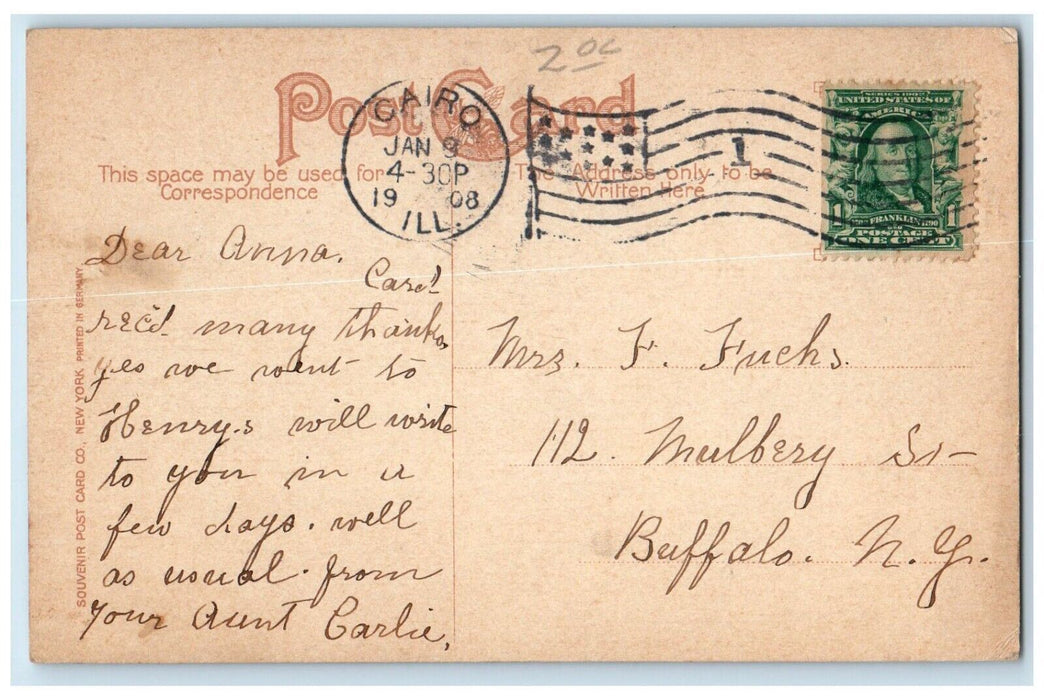 2 oc
Post Card
This space may be used for
Correspondence
The Address only to be
Written Here
CAIRO
JAN 9
4-30P
19 08
ILL.
1
SERIES 1902
UNITED STATES OF
AMERICA
FRANKLIN
POSTAGE
1 ONE CENT 1
Dear Anna.
Card
rec'd many thanks,
yes we went to
Henry.s will write
to you in a
few days. well
as usual. from
Your Aunt Carlie,
Mrs. F. Fuchs.
112. Mulbery St
Buffalo. N. Y.
SOUVENIR POST CARD CO., NEW YORK PRINTED IN GERMANY